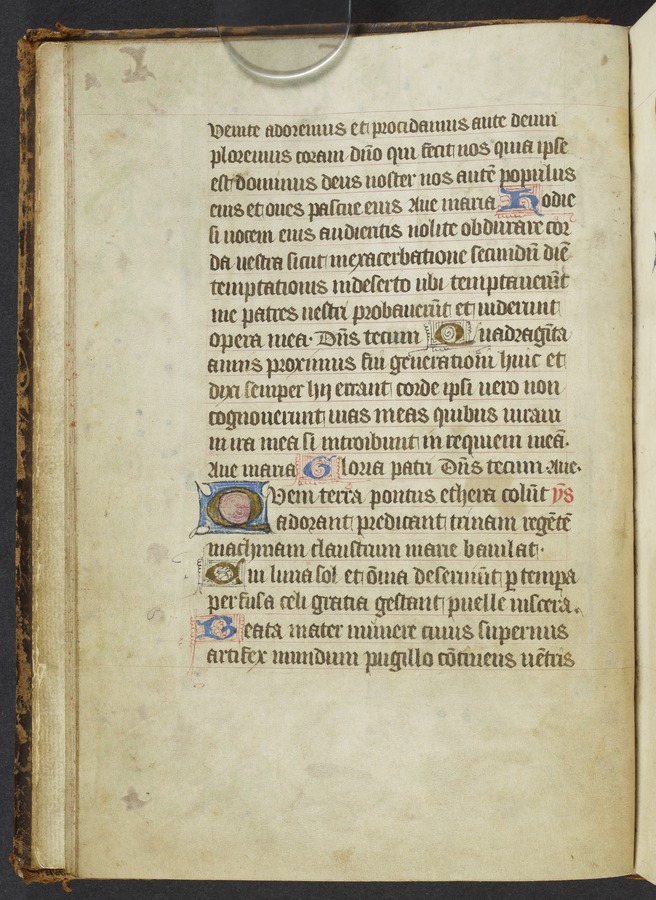 Venite adoremus et procidamus ante deum
ploremus coram dn̄o qui fecit nos quia ipse
est dominus deus noster nos autē populus
eius et oues pascue eius Aue maria Hodie
si uocem eius audieritis nolite obdurare cor
da uestra sicut inexacerbatione secundū diē
temptationis indeserto ubi temptauerūt
me patres uestri probauerūt et uiderunt
opera mea· Dn̄s tecum Quadragīta
annis proximus fui generationi huic et
dixi semper hij errant corde ipsi uero non
cognouerunt uias meas quibus iuraui
in ira mea si introibunt in requiem meā·
Aue maria Gloria patri Dn̄s tecum·Aue·
Quem terra pontus ethera colūt ys
adorant predicant trinam regētē
machinam claustrum marie baiulat·
Cui luna sol et ōmia deseruiūt p tempa
perfusa celi gratia gestant puelle uiscera.
Beata mater munere cuius supernus
artifex mundum pugillo cōtinens uētris